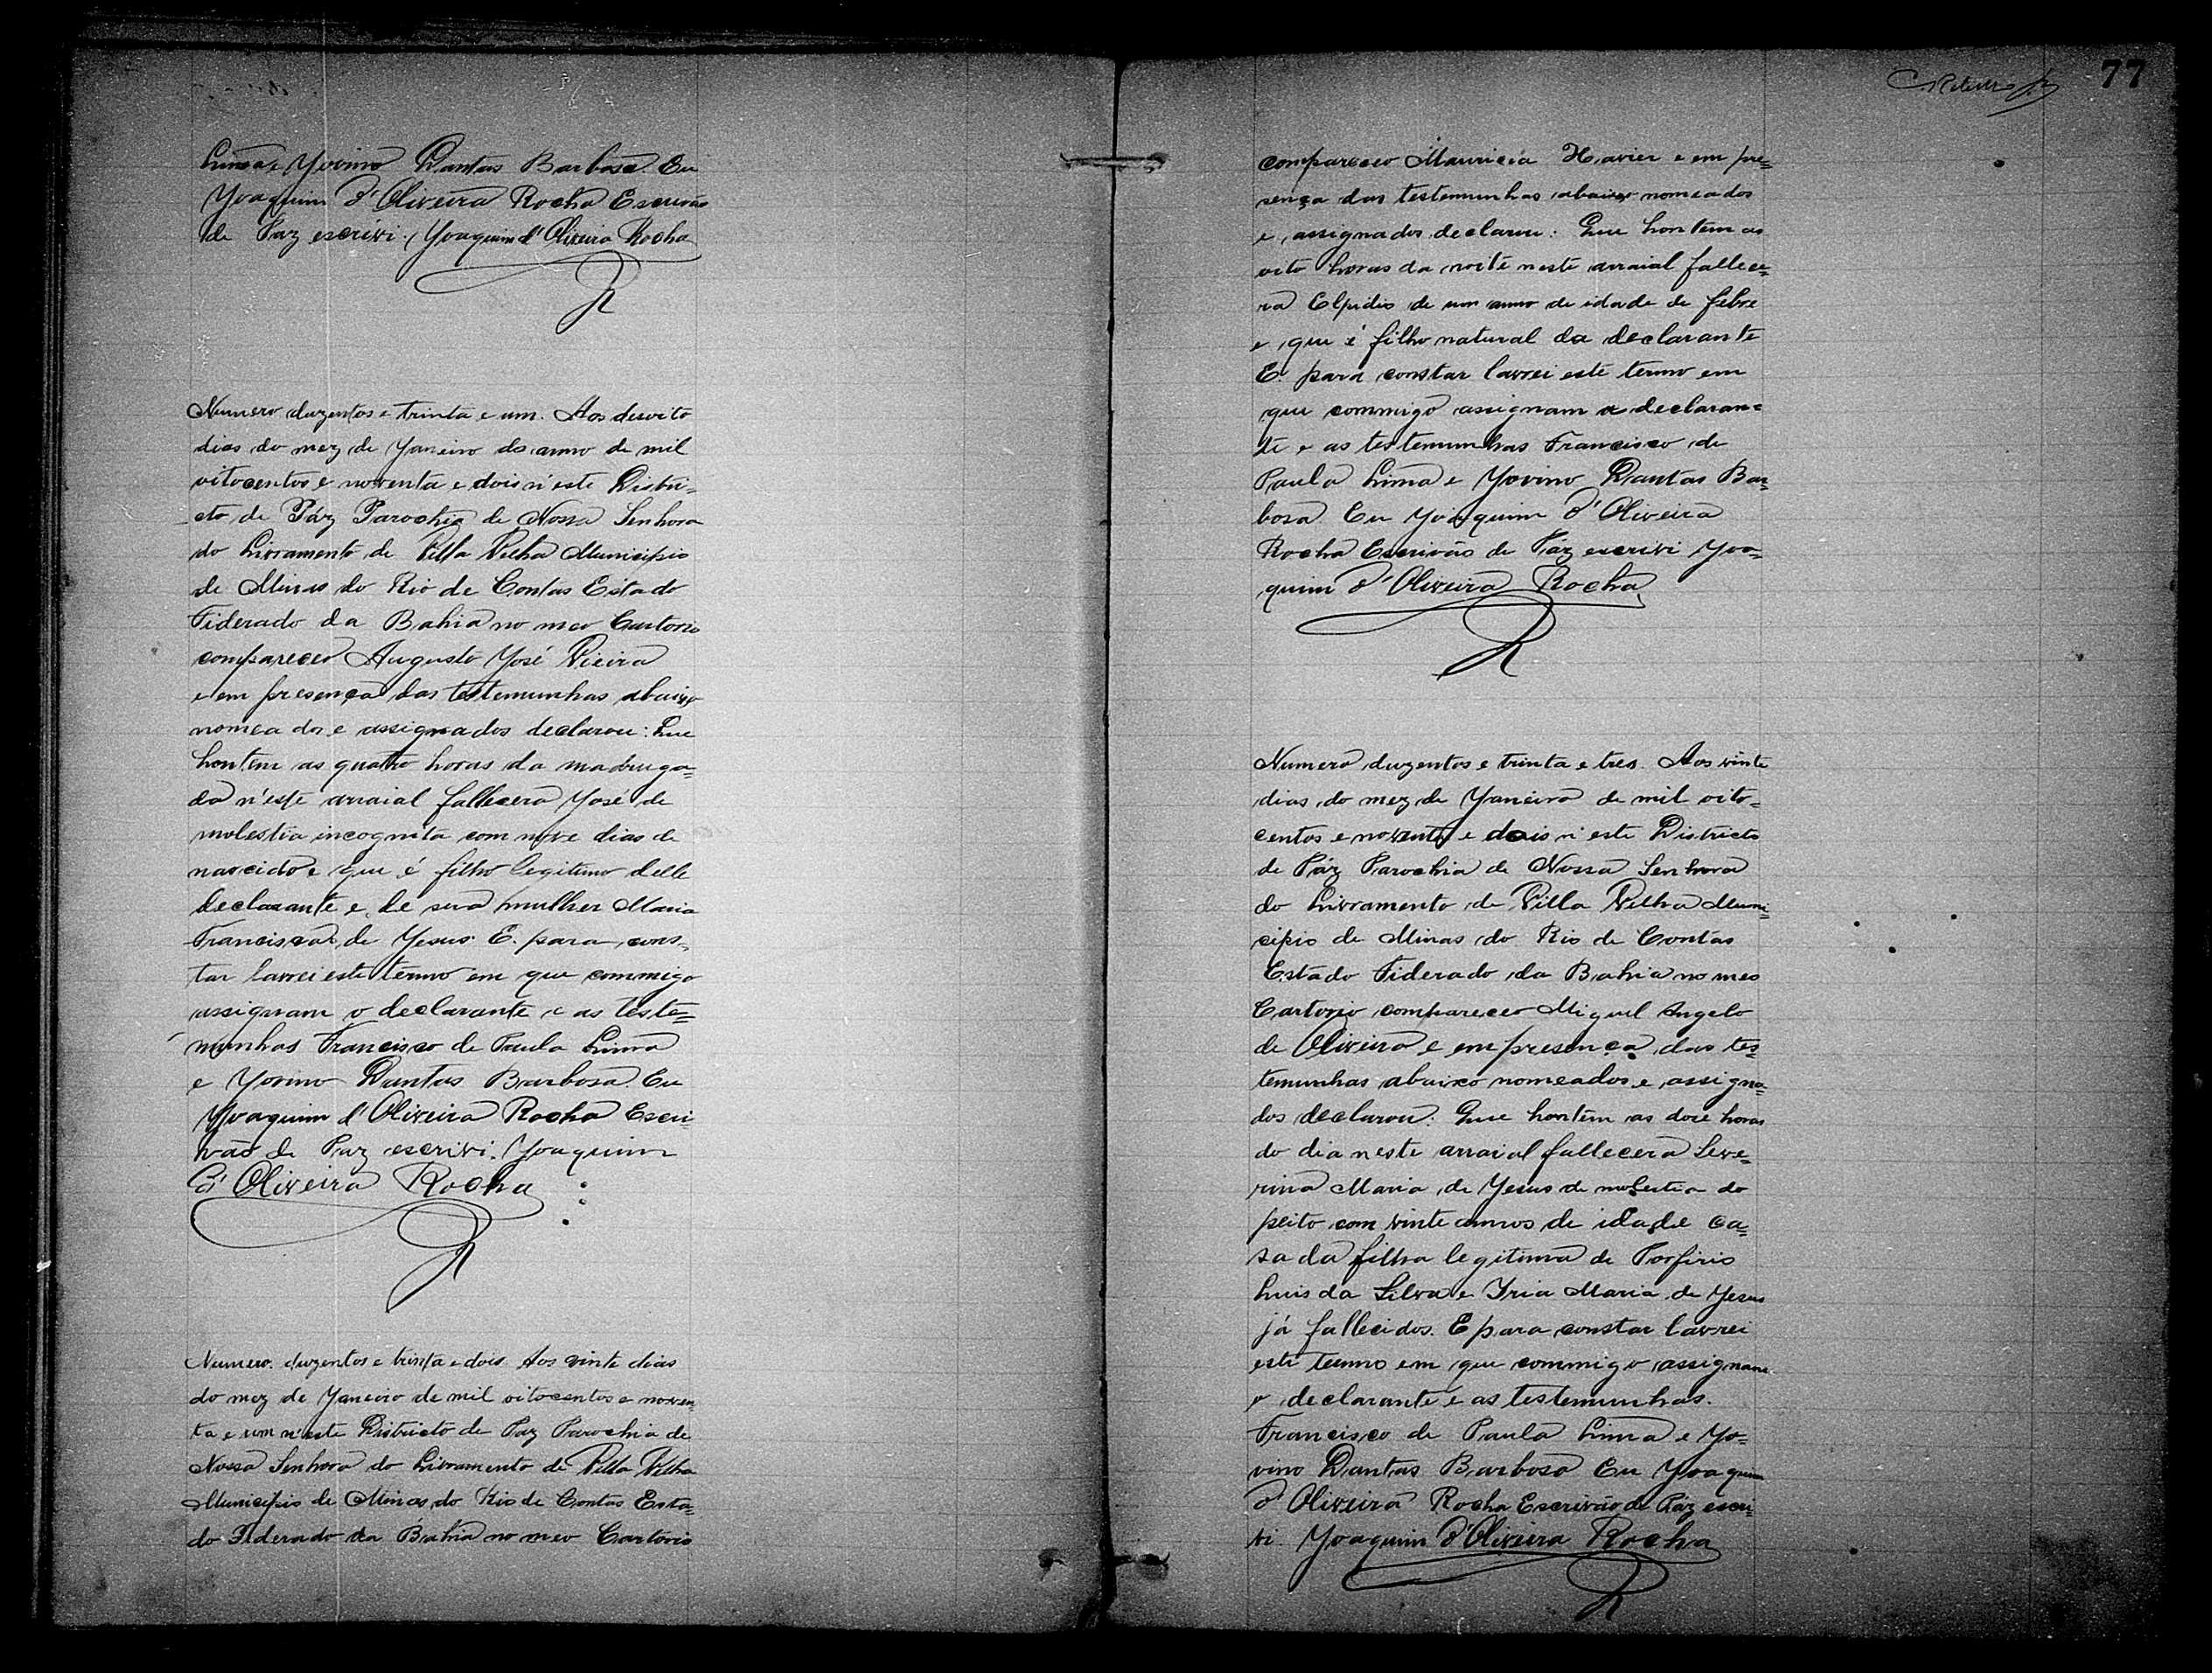 Lima e Yovino Dantas Barbosa. Eu
Yoaquim d'Oliveira Rocha Escrivão
de Paz escrivi. Yoaquim d'Oliveira Rocha
R
Numero duzentos e trinta e um. Aos desoito
dias do mez de Yaneiro do anno de mil
oitocentos e noventa e dois n'este Distri-
cto de Páz Parochia de Nossa Senhora
do Livramento de Villa Velha Municipio
de Minas do Rio de Contas Estado
Fiderado da Bahia no meo Cartorio
compareceo Augusto Yosé Vieira
e em presença das testemunhas abaixo
nomeados e assignados declarou: Que
hontem as quatro horas da madruga=
da n'este arraial fallecera Yosé de
molestia incognita com nove dias de
nascido e que é filho legitimo delle
declarante e de sua mulher Maria
Francisca de Yesus. E. para cons-
tar lavrei este termo em que commigo
assignam o declarante e as teste=
munhas Francisco de Paula Lima
e Yovino Dantas Barbosa. Eu
Yoaquim d'Oliveira Rocha Escri-
vão de Paz escrivi. Yoaquim
d'Oliveira Rocha
R
Numero. duzentos e trinta e dois. Aos vinte dias
do mez de Yaneiro de mil oitocentos e noven-
ta e um n'este Districto de Paz Parochia de
Nossa Senhora do Livramento de Villa Velha
Municipio de Minas do Rio de Contas Esta-
do Fiderado da Bahia no meo Cartorio
77
compareceo Mauricia Xavier e em pre=
sença das testemunhas abaixo nomeados
e assignados declarou: Que hontem as
oito horas da noite neste arraial fallece=
ra Elpidio de um anno de idade de febre
e que é filho natural da declarante
E. para constar lavrei este termo em
que commigo assignam a declaran=
te e as testemunhas Francisco de
Paula Lima e Yovino Dantas Bar=
bosa. Eu Yoaquim d'Oliveira
Rocha Escrivão de Páz escrivi Yoa=
quim d'Oliveira Rocha
R
Numero duzentos e trinta e tres. Aos vinte
dias do mez de Yaneiro de mil oito=
centos e noventa e dois n'este Districto
de Páz Parochia de Nossa Senhora
do Livramento de Villa Velha Muni=
cipio de Minas do Rio de Contas
Estado Fiderado da Bahia no meo
Cartorio compareceo Miguel Angelo
de Oliveira e em presença das tes=
temunhas abaixo nomeados e assigna-
dos declarou: Que hontem as dose horas
do dia neste arraial fallecera Seve=
rina Maria de Yesus de molestia do
peito com vinte annos de idade ca=
sada filha legitima de Porfirio
Luis da Silva e Yria Maria de Yesus
já fallecidos. E para constar lavrei
este termo em que commigo assignam
o declarante e as testemunhas.
Francisco de Paula Lima e Yo=
vino Dantas Barbosa Eu Yoaquim
d'Oliveira Rocha Escrivão de Páz escri-
vi. Yoaquim d'Oliveira Rocha
R